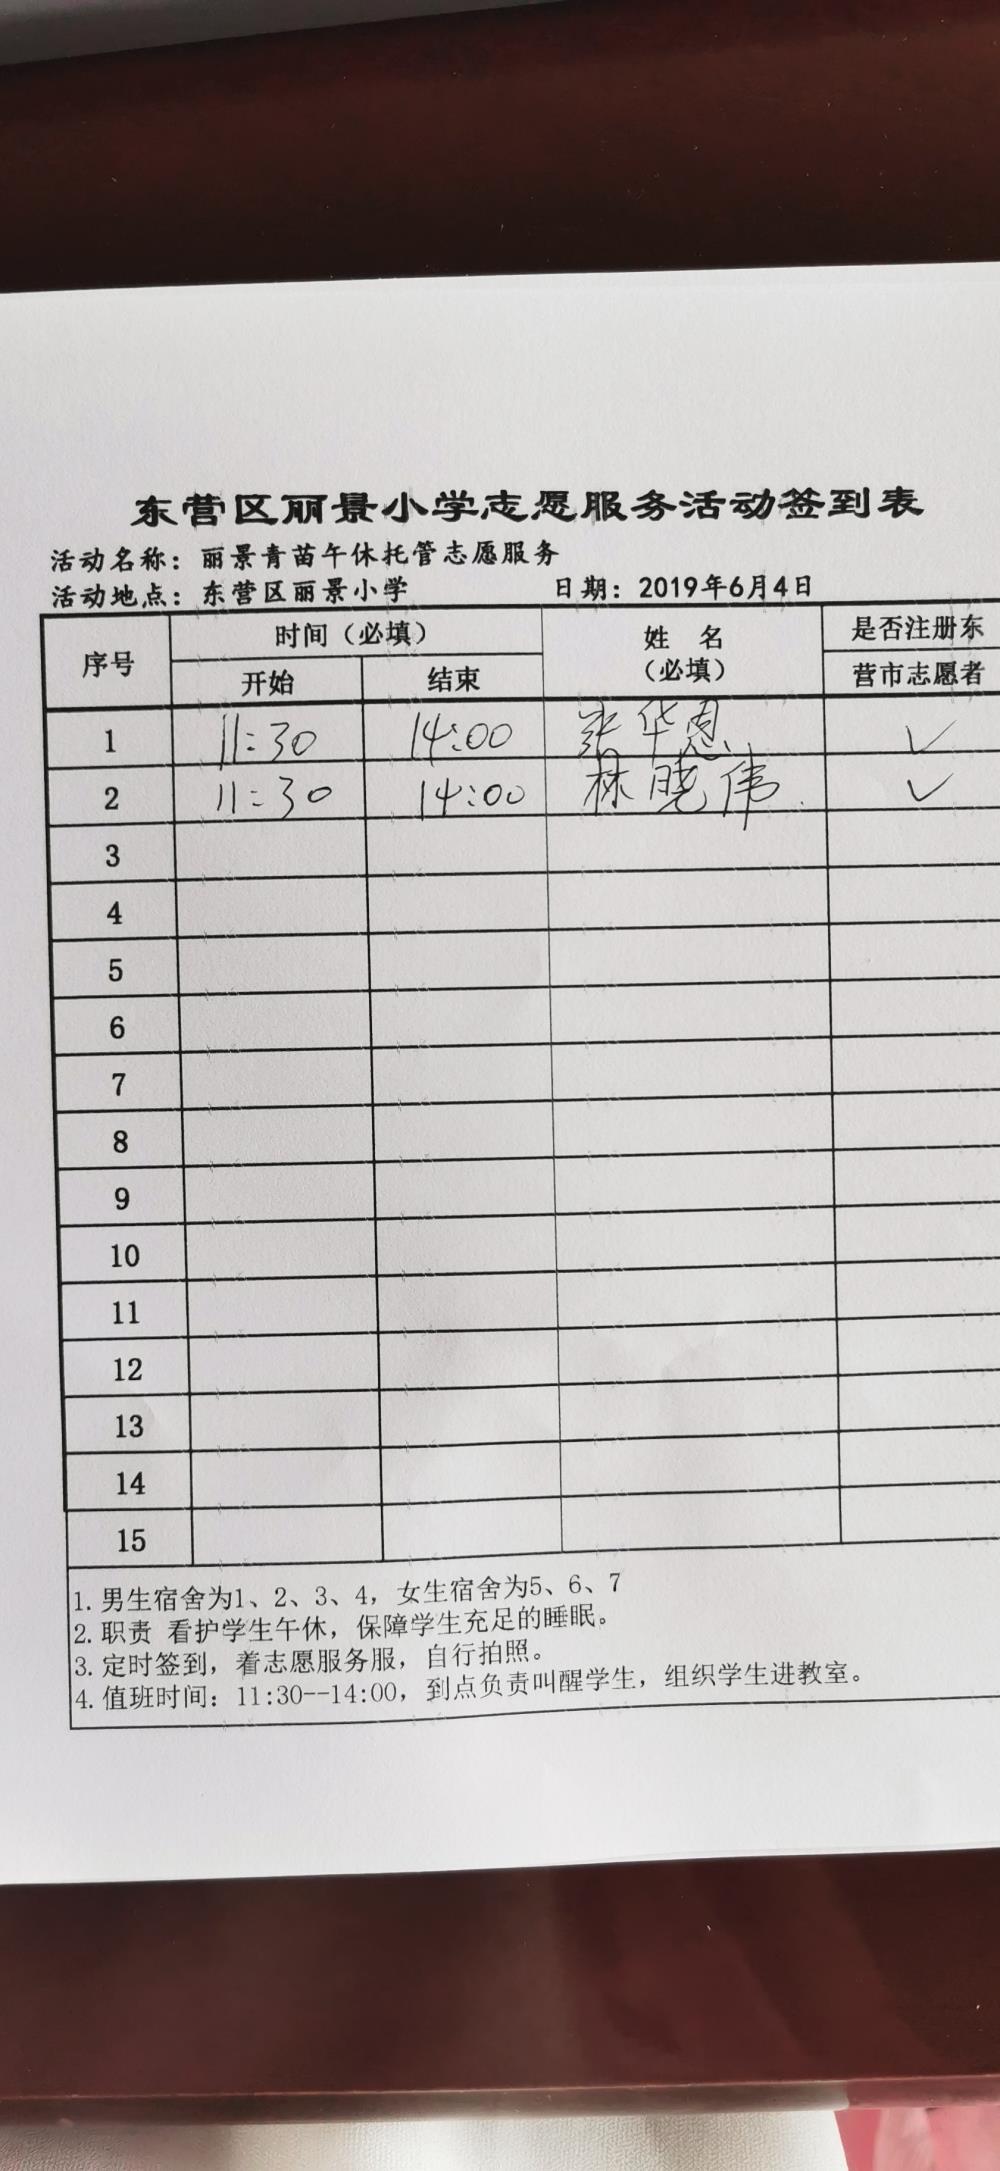 东营区丽景小学志愿服务活动签到表
活动名称：丽景青苗午休托管志愿服务
活动地点：东营区丽景小学 日期：2019年6月4日
序号 时间（必填） 姓 名（必填） 是否注册东营市志愿者
开始 结束
1 11:30 14:00 张华恩 ✓
2 11:30 14:00 林晓伟 ✓
3
4
5
6
7
8
9
10
11
12
13
14
15
1. 男生宿舍为1、2、3、4，女生宿舍为5、6、7
2. 职责 看护学生午休，保障学生充足的睡眠。
3. 定时签到，着志愿服务服，自行拍照。
4. 值班时间：11:30--14:00，到点负责叫醒学生，组织学生进教室。